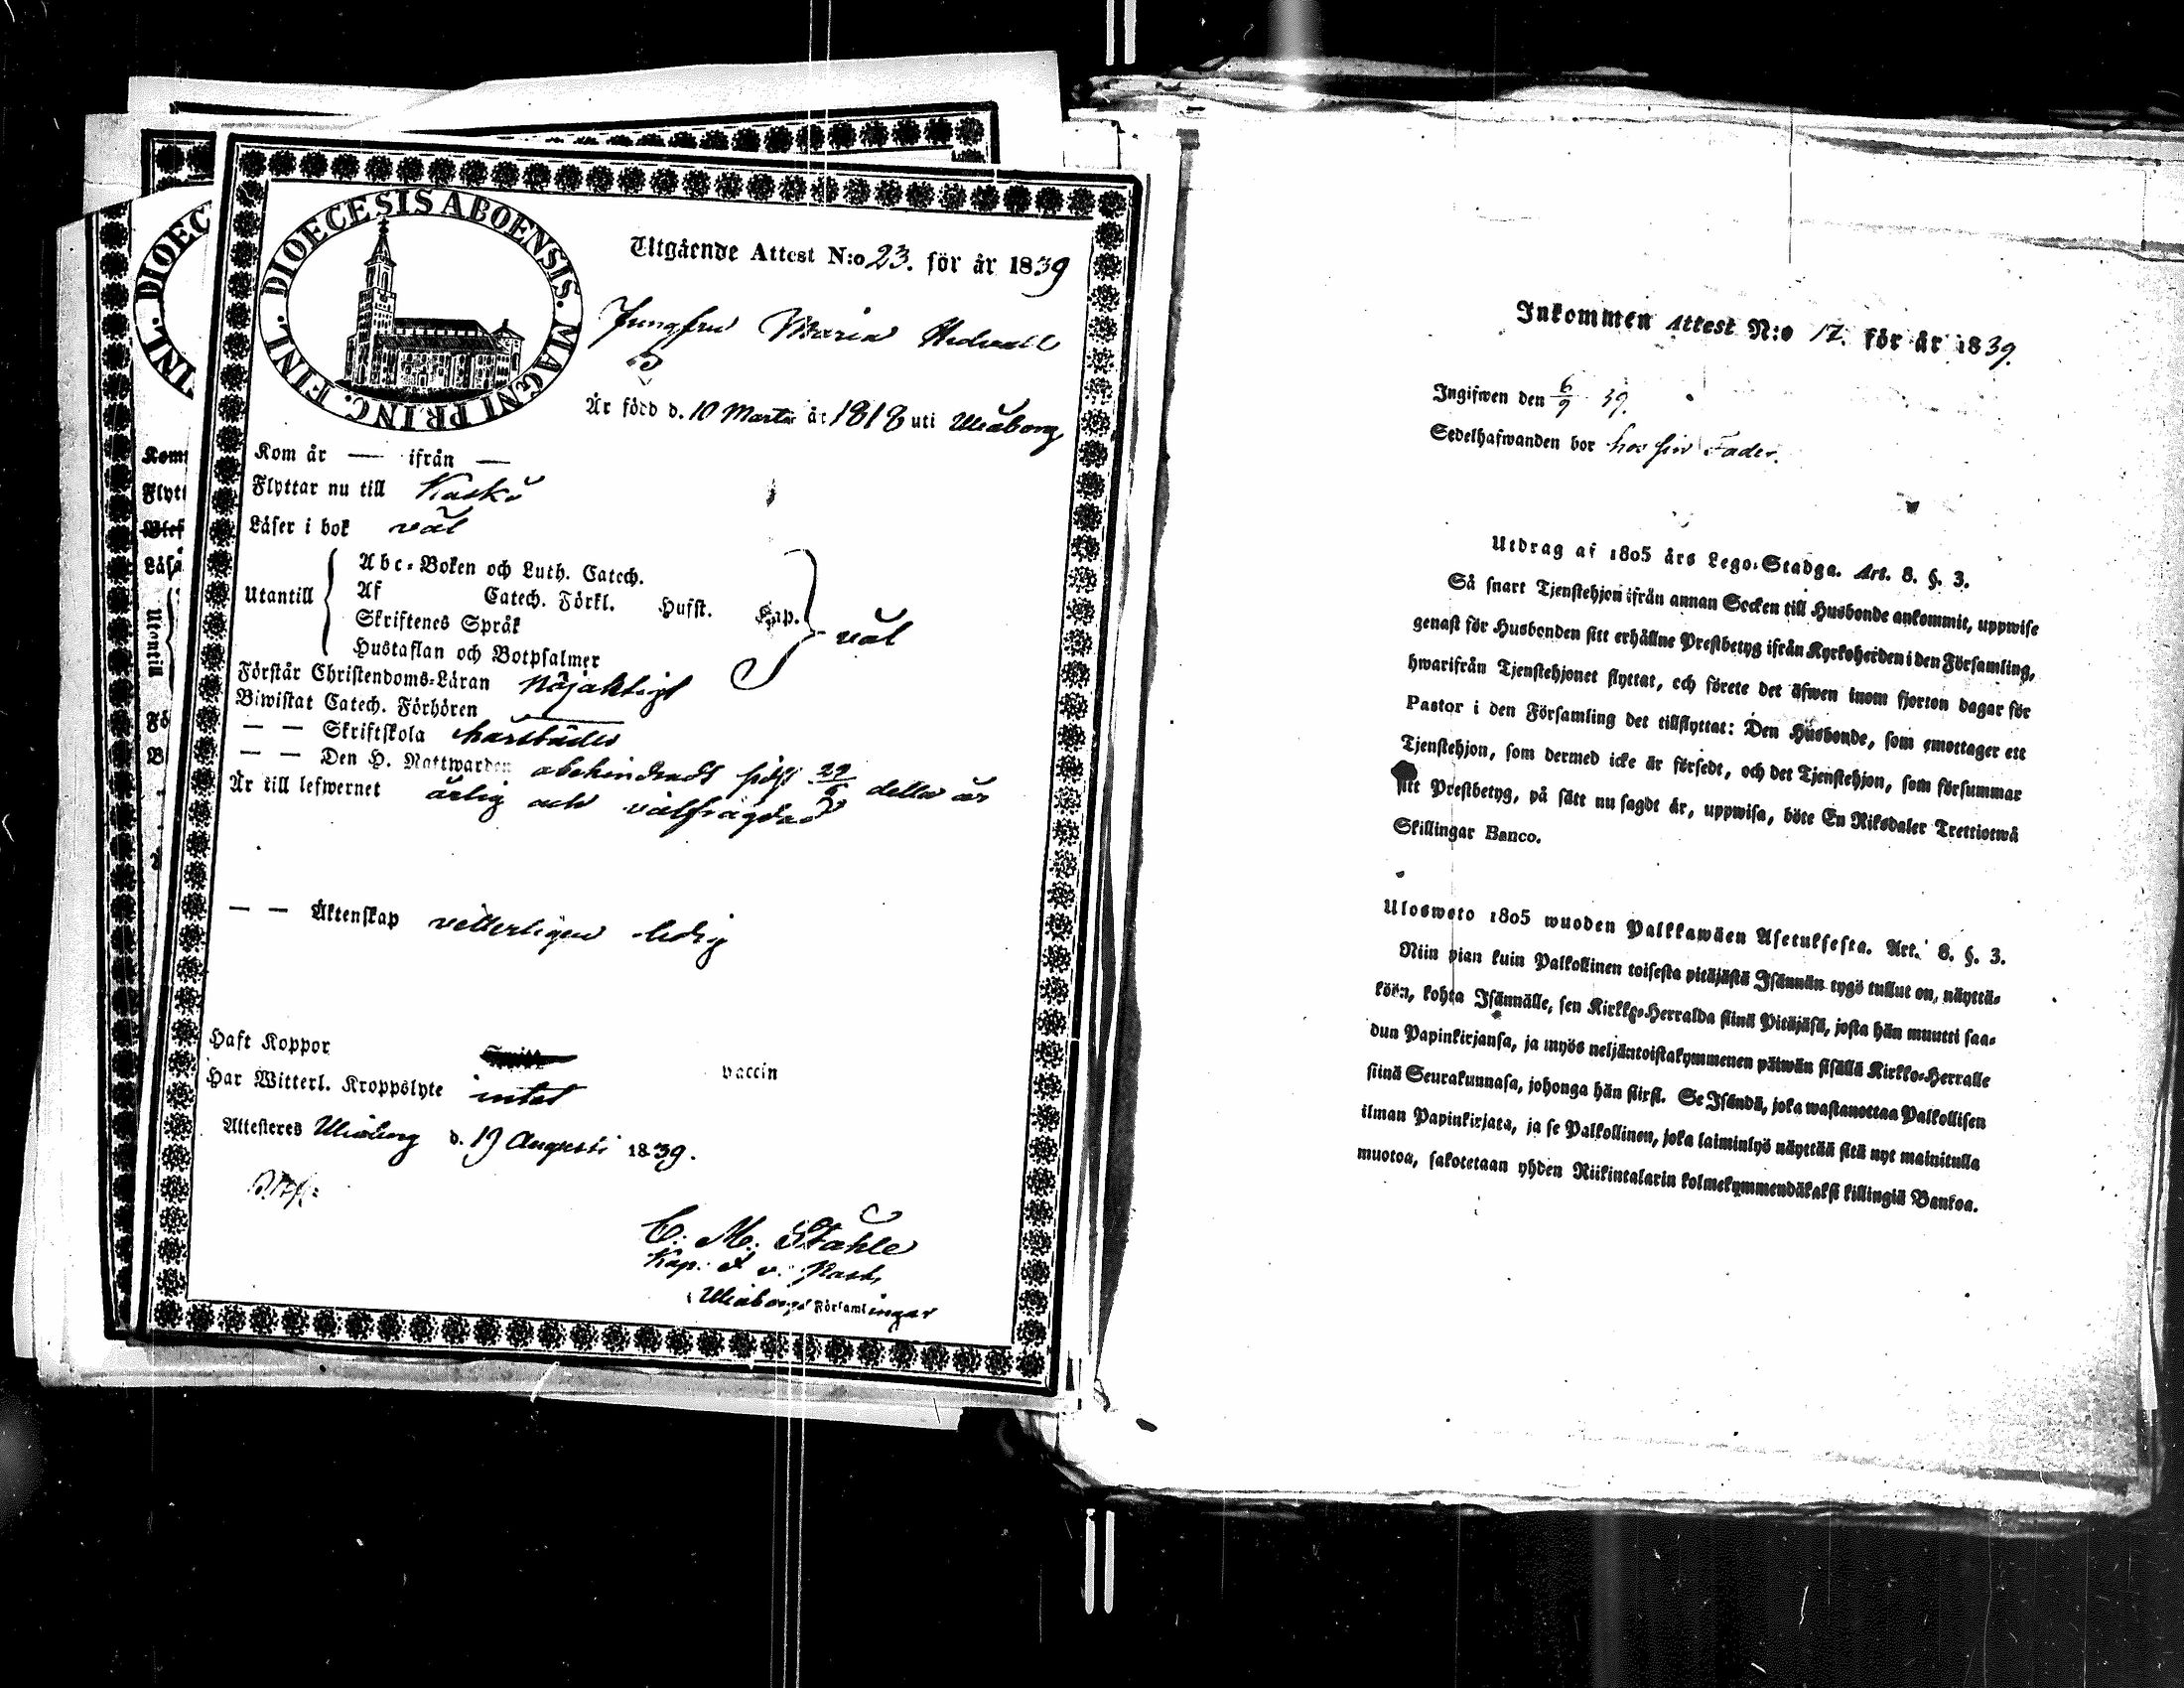 DIOECESIS ABOENSIS. MAGNI PRINC. FINL.
Utgående Attest N:o 23. för år 1839
Jungfru Maria Hedvall
Är född d. 10 Martii år 1818 uti Uleåborg
Kom år — ifrån —
Flyttar nu till Kaskö
Läser i bok väl
Utantill
Abc-Boken och Luth. Catech.
Af Catech. Förkl. Husst. Cap.
Skriftenes Språk
Hustaflan och Botpsalmer
väl
Förstår Christendoms-Läran nöjaktigt
Biwistat Catech. Förhören
— — Skriftskola härstädes
— — Den H. Nattwarden obehindradt sidst detta år
Är till lefwernet ärlig och välfrägdad
— — Äktenskap vetterligen ledig
Haft Koppor vaccin
Har Witterl. Kroppslyte intet
Attesteres Uleåborg d. 19 Augusti 1839.
C. M. Ståhle
Kap. & v. Past.
i Uleåborgs Församlingar
DIOEC
INL.
Kom
Flytt
Läse
Utantill
Fö
B
Inkommen Attest N:o 17. för år 1839.
Ingifwen den 6/9 39.
Sedelhafwanden bor hos sin Fader.
Utdrag af 1805 års Lego-Stadga. Art. 8. §. 3.
Så snart Tjenstehjon ifrån annan Socken till Husbonde ankommit, uppwise
genast för Husbonden sitt erhållne Prestbetyg ifrån Kyrkoherden i den Församling,
hwarifrån Tjenstehjonet flyttat, och förete det äfwen inom fjorton dagar för
Pastor i den Församling det tillflyttat: Den Husbonde, som emottager ett
Tjenstehjon, som dermed icke är försedt, och det Tjenstehjon, som försummar
sitt Prestbetyg, på sätt nu sagdt är, uppwisa, böte En Riksdaler Trettiotwå
Skillingar Banco.
Ulosweto 1805 wuoden Palkkawäen Asetuksesta. Art. 8. §. 3.
Niin pian kuin Palkollinen toisesta pitäjästä Isännän tygö tullut on, näyttä-
köön, kohta Isännälle, sen Kirkko-Herralda siinä Pitäjäsä, josta hän muutti saa-
dun Papinkirjansa, ja myös neljäntoistakymmenen päiwän sisällä Kirkko-Herralle
siinä Seurakunnasa, johonga hän siirst. Se Isändä, joka wastanottaa Palkollisen
ilman Papinkirjata, ja se Palkollinen, joka laiminlyö näyttää sitä nyt mainitulla
muotoa, sakotetaan yhden Riikintalarin kolmekymmendäkaksi killingiä Bankoa.